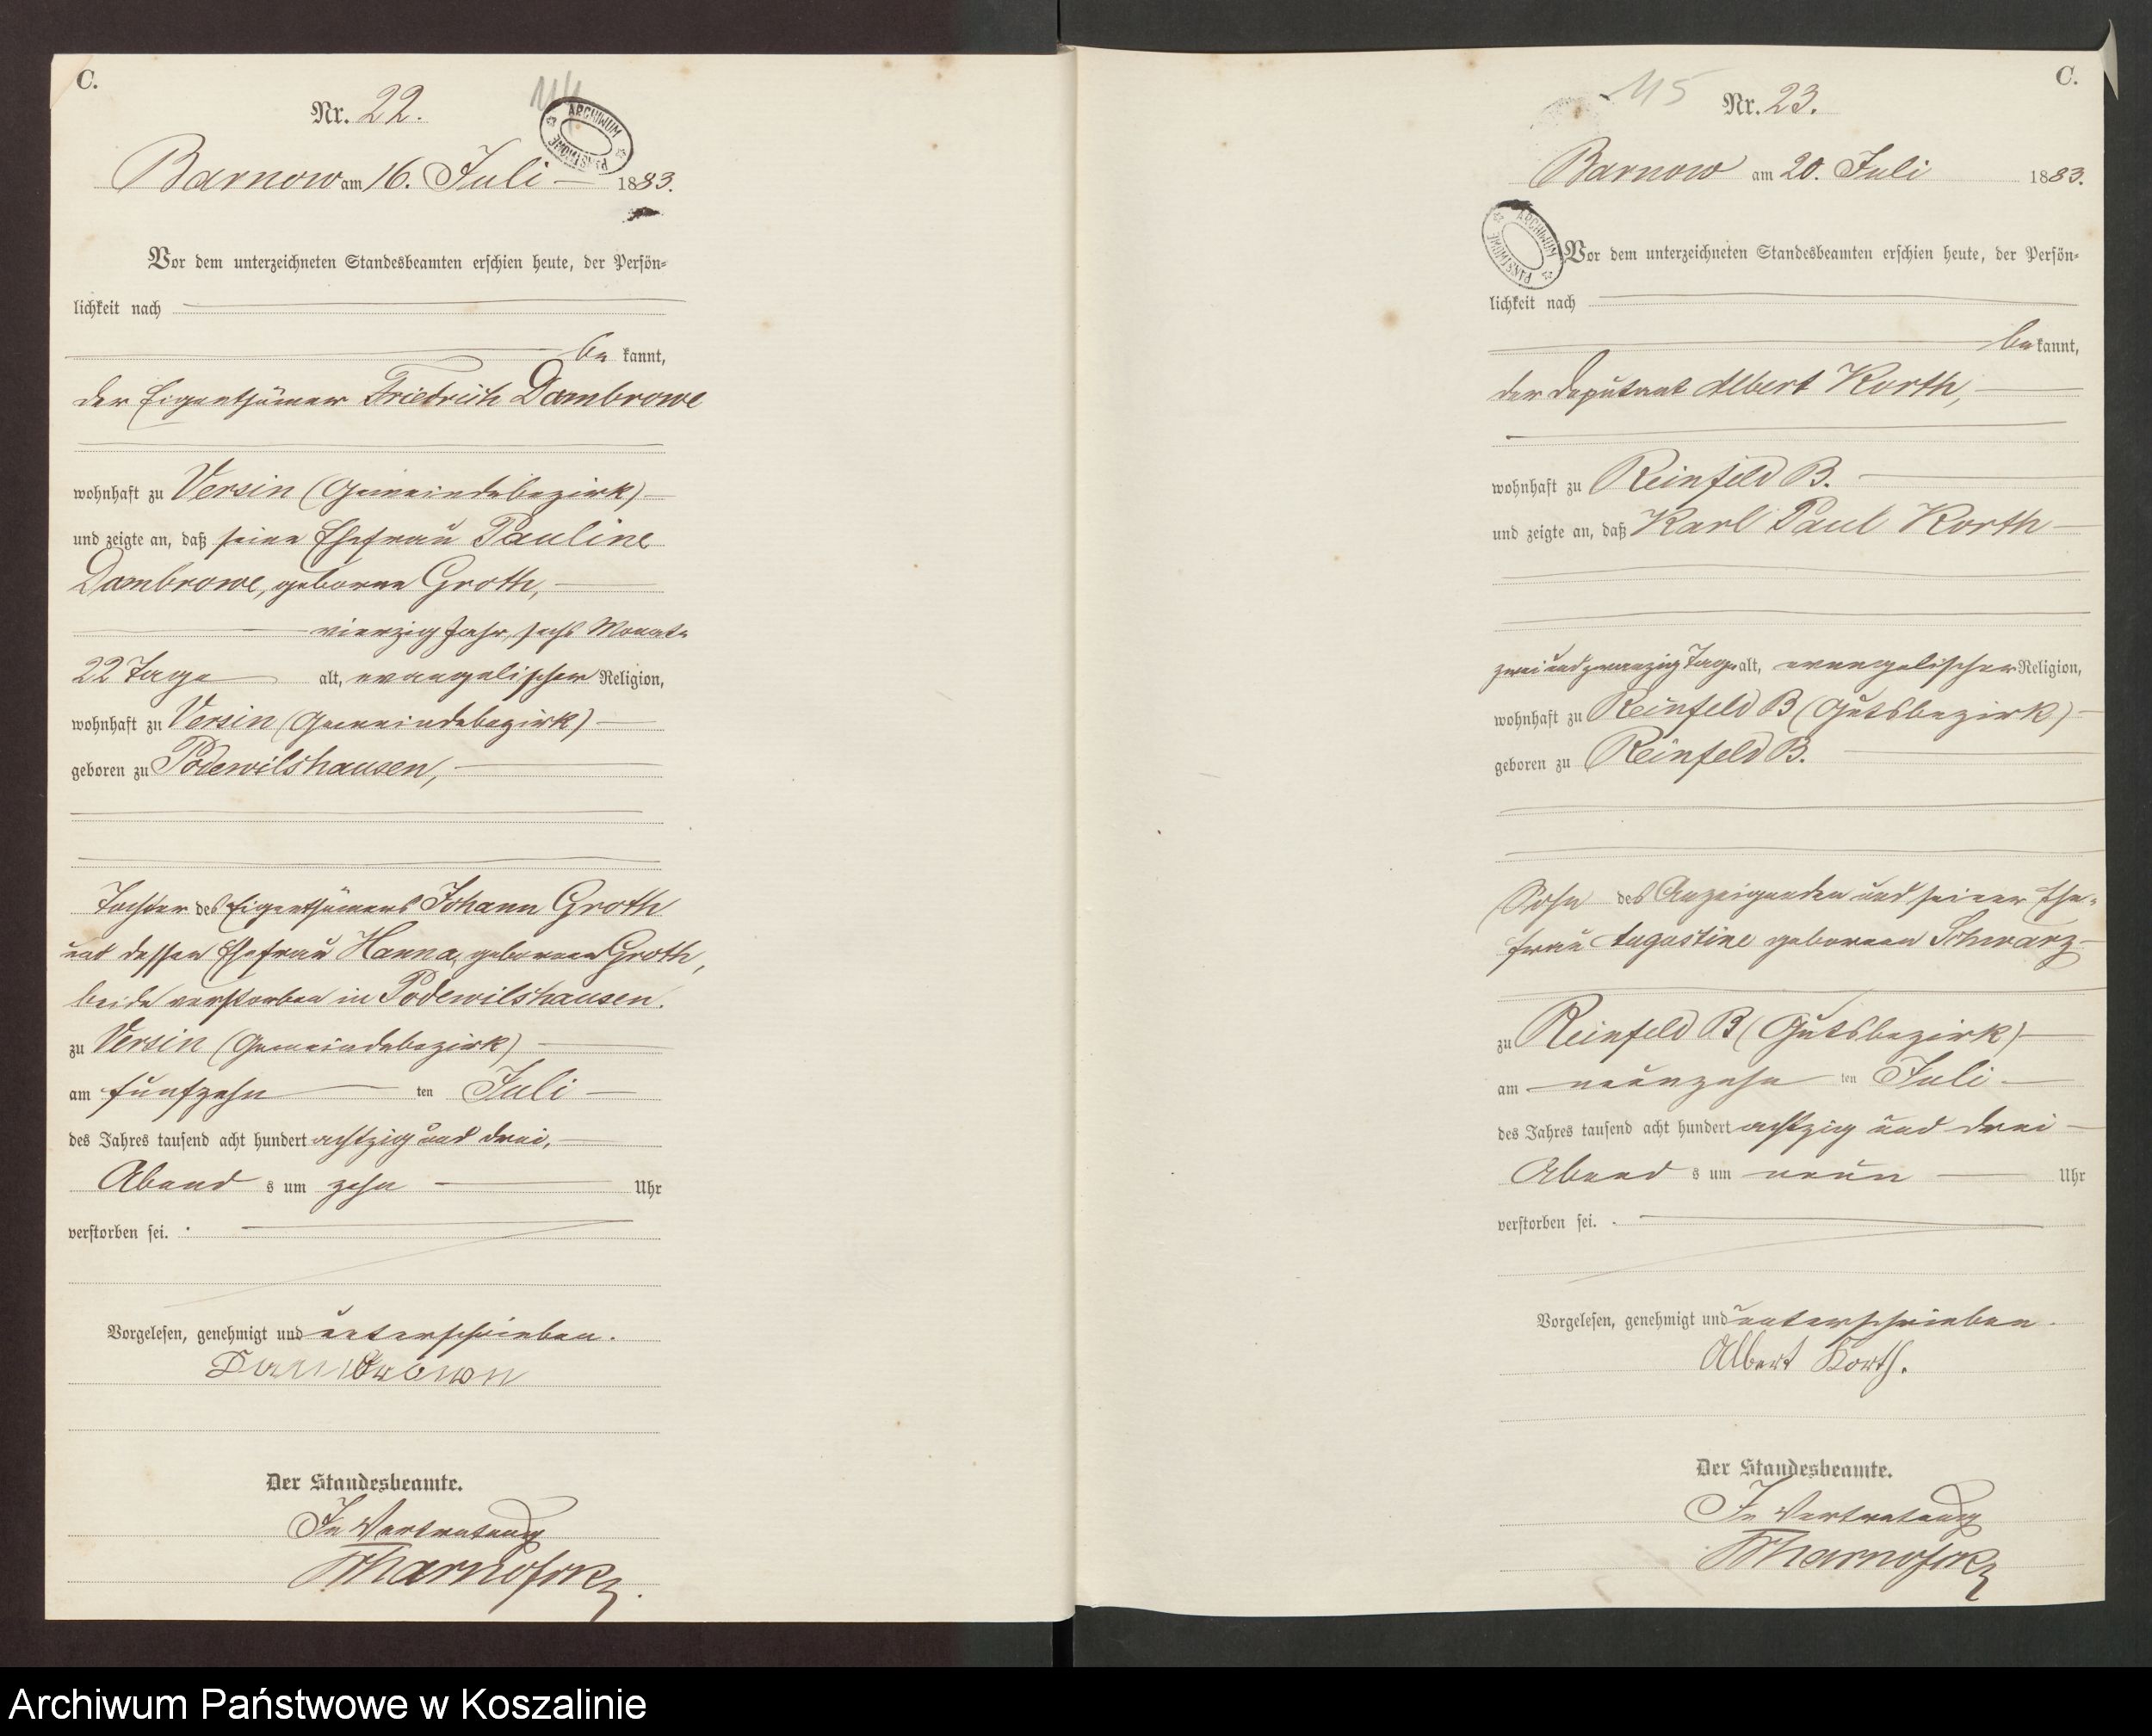 C.
114
Nr. 22.
ARCHIWUM PAŃSTWOWE
Barnow am 16. Juli 1883.
Vor dem unterzeichneten Standesbeamten erschien heute, der Persön-
lichkeit nach
be kannt,
der Eigenthümer Friedrich Dambrowe
wohnhaft zu Versin (Gemeindebezirk)
und zeigte an, daß seine Ehefrau Pauline
Dambrowe, geborne Groth,
vierzig Jahr, sechs Monate
22 Tage alt, evangelischer Religion,
wohnhaft zu Versin (Gemeindebezirk)
geboren zu Podewilshausen,
Tochter des Eigenthümers Johann Groth
und dessen Ehefrau Hanna, geborenen Groth,
beide verstorben in Podewilshausen.
zu Versin (Gemeindebezirk)
am fünfzehn ten Juli
des Jahres tausend acht hundert achtzig und drei,
Abend s um zehn Uhr
verstorben sei.
Vorgelesen, genehmigt und unterschrieben.
Der Standesbeamte.
In Vertretung
C.
115
Nr. 23.
Barnow am 20. Juli 1883.
ARCHIWUM PAŃSTWOWE
Vor dem unterzeichneten Standesbeamten erschien heute, der Persön-
lichkeit nach
be kannt,
der Deputant Albert Korth,
wohnhaft zu Reinfeld B.
und zeigte an, daß Karl Paul Korth
zwei und zwanzig Tage alt, evangelischer Religion,
wohnhaft zu Reinfeld B (Gutsbezirk)
geboren zu Reinfeld B.
Sohn des Anzeigenden und seiner Ehe-
frau Augustine geborenen Schwarz
zu Reinfeld B (Gutsbezirk)
am neunzehn ten Juli
des Jahres tausend acht hundert achtzig und drei
Abend s um neun Uhr
verstorben sei.
Vorgelesen, genehmigt und unterschrieben.
Albert Korth.
Der Standesbeamte.
In Vertretung
Archiwum Państwowe w Koszalinie